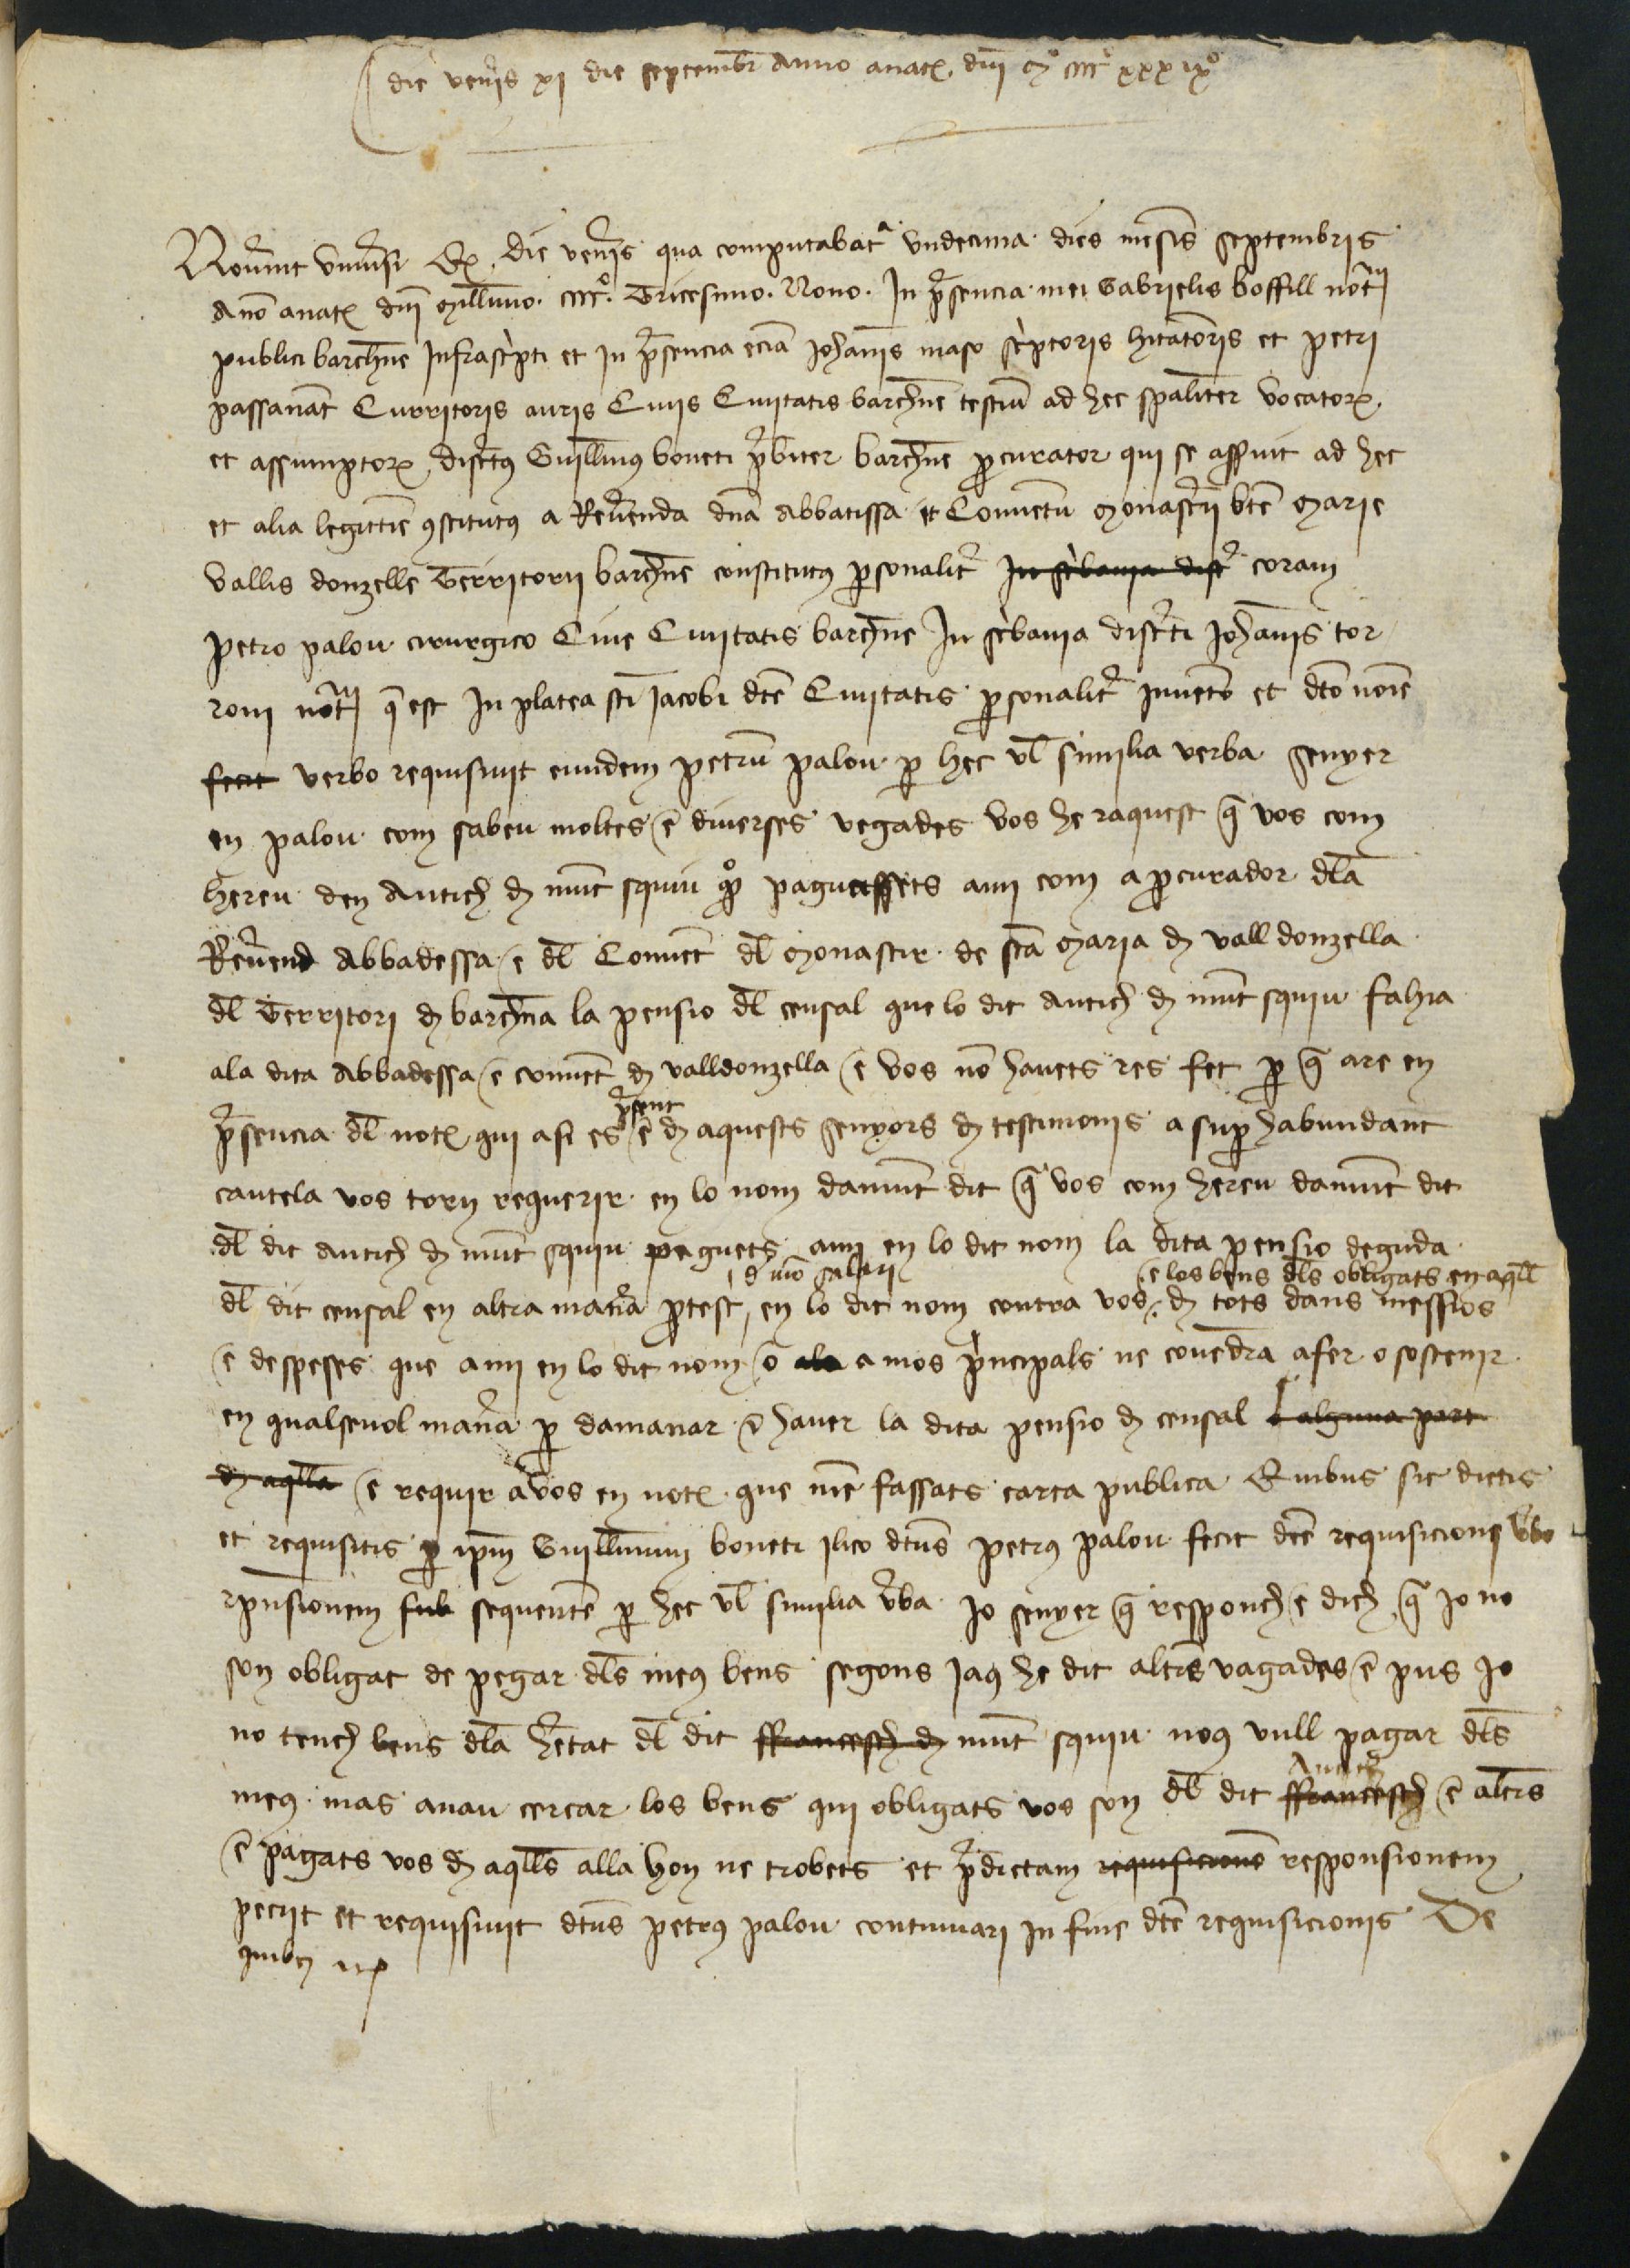 die venis xi die septembr Anno anat dni Mº CCCCº xxx ixº
Noverint universi Q die venis qua computabatr undecima dies mensis septembris
Ano anat dni Millimo CCCCº Tricesimo Nono In psencia mei Gabrielis boffill notrii
publici barchne Infrascpti et in psencia ecia Johanis maso scptoris hitatoris et petri
passanat Curritoris auris Civis Civitatis barchne testiu ad hec spaliter vocator
et assumptor disctus Guillmus boneti pbiter barchne pcurator qui se asseruit ad hec
et alia legittie constitutus a Reverenda dna Abbatissa et Conuetu Monasterii bte Marie
Vallis donzelle Territorii barchne constitutus psonalitr In scbania disc coram
petro palou cirurgico Cive Civitatis barchne In scbania discreti Johanis tor
roni notrii q est In platea sti Jacobi dte Civitatis psonalitr inueto et dto noie
fecit verbo requisivit eumdem petru palou p hec vl similia verba senyer
en palou com sabeu moltes e diverses vegades vos he raquest q vos com
hereu den Antich d munt squiu qm paguessets ami com a pcurador dla
Reverend Abbadessa e dl Conuet dl Monastir de sta Maria d vall donzella
dl Territori d barchna la pensio dl censal que lo dit Antich d munt squiu fahia
ala dita Abbadessa e conuet d valldonzella e vos no havets res fet p q are en
psencia dl not qui asi es psent e d aquests senyors d testimonis a sup habundant
cautela vos torn requerir en lo nom damunt dit q vos com hereu damunt dit
dl dit Antich d munt squiu paguets ami en lo dit nom la dita pensio deguda
d mo salari e los bens dls obligats en aqll
dl dit censal en altra manera ptest en lo dit nom contra vos d tots dans messios
e despeses que ami en lo dit nom o ala a mos principals ne covedra afer o sostenir
en qualsevol manera p damanar e haver la dita pensio d censal alguna part
d aqlla e requir a vos en not que me fassats carta publica Quibus sic dictis
et requisitis p ipm Guillmum boneti ilico dtus petrus palou fecit dte requisicioni vbo
rpnsionem sub sequente p hec vl similia verba Jo senyer q responch e dich q jo no
son obligat de pegar dls meus bens segons jaus he dit altrs vagades e pus jo
no tench bens dla heretat dl dit ffrancesch d munt squiu nous vull pagar dls
Antich
meus mas anau cercar los bens qui obligats vos son dl dit ffrancesch e altrs
e pagats vos d aqlls alla hon ne trobets et pdictam requisicione responsionem
peciit et requisivit dtus petrus palou continuari in fine dte requisicionis De
quibus